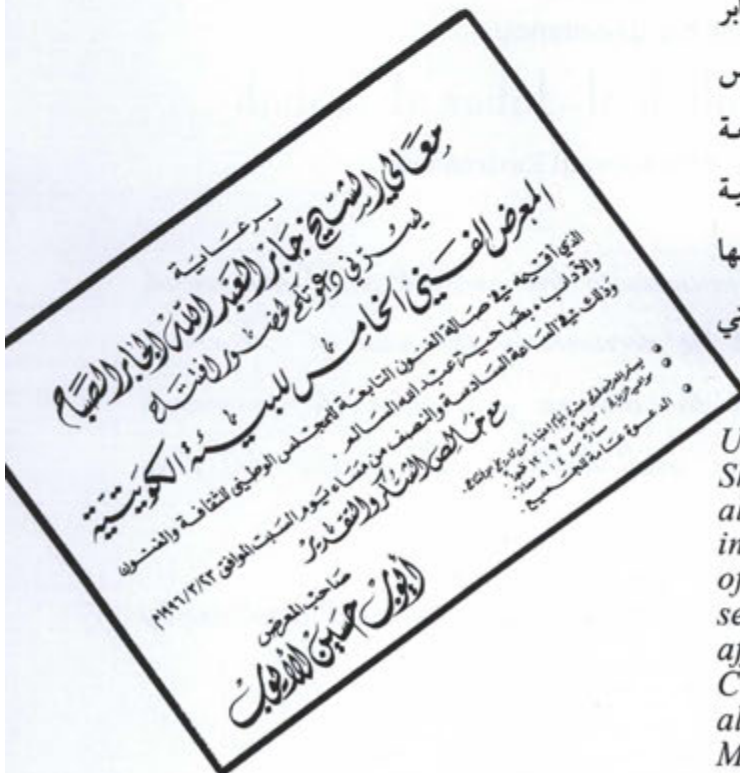 برعاية
معالي الشيخ جابر العبد الله الجابر الصباح
يسرني دعوتكم لحضور افتتاح
المعرض الفني الخامس للبيئة الكويتية
الذي أقيمه في صالة الفنون التابعة للمجلس الوطني للثقافة والفنون
والآداب، بضاحية عبد الله السالم.
وذلك في الساعة السادسة والنصف من مساء يوم السبت الموافق ١٩٩٦/٣/٢٣م
مع خالص الشكر والتقدير
صاحب المعرض
أيوب حسين الأيوب
• الدعوة عامة للجميع.
ابر
س
مة
ية
ها
ني
U
Sh
al
in
of
se
af
C
al
M